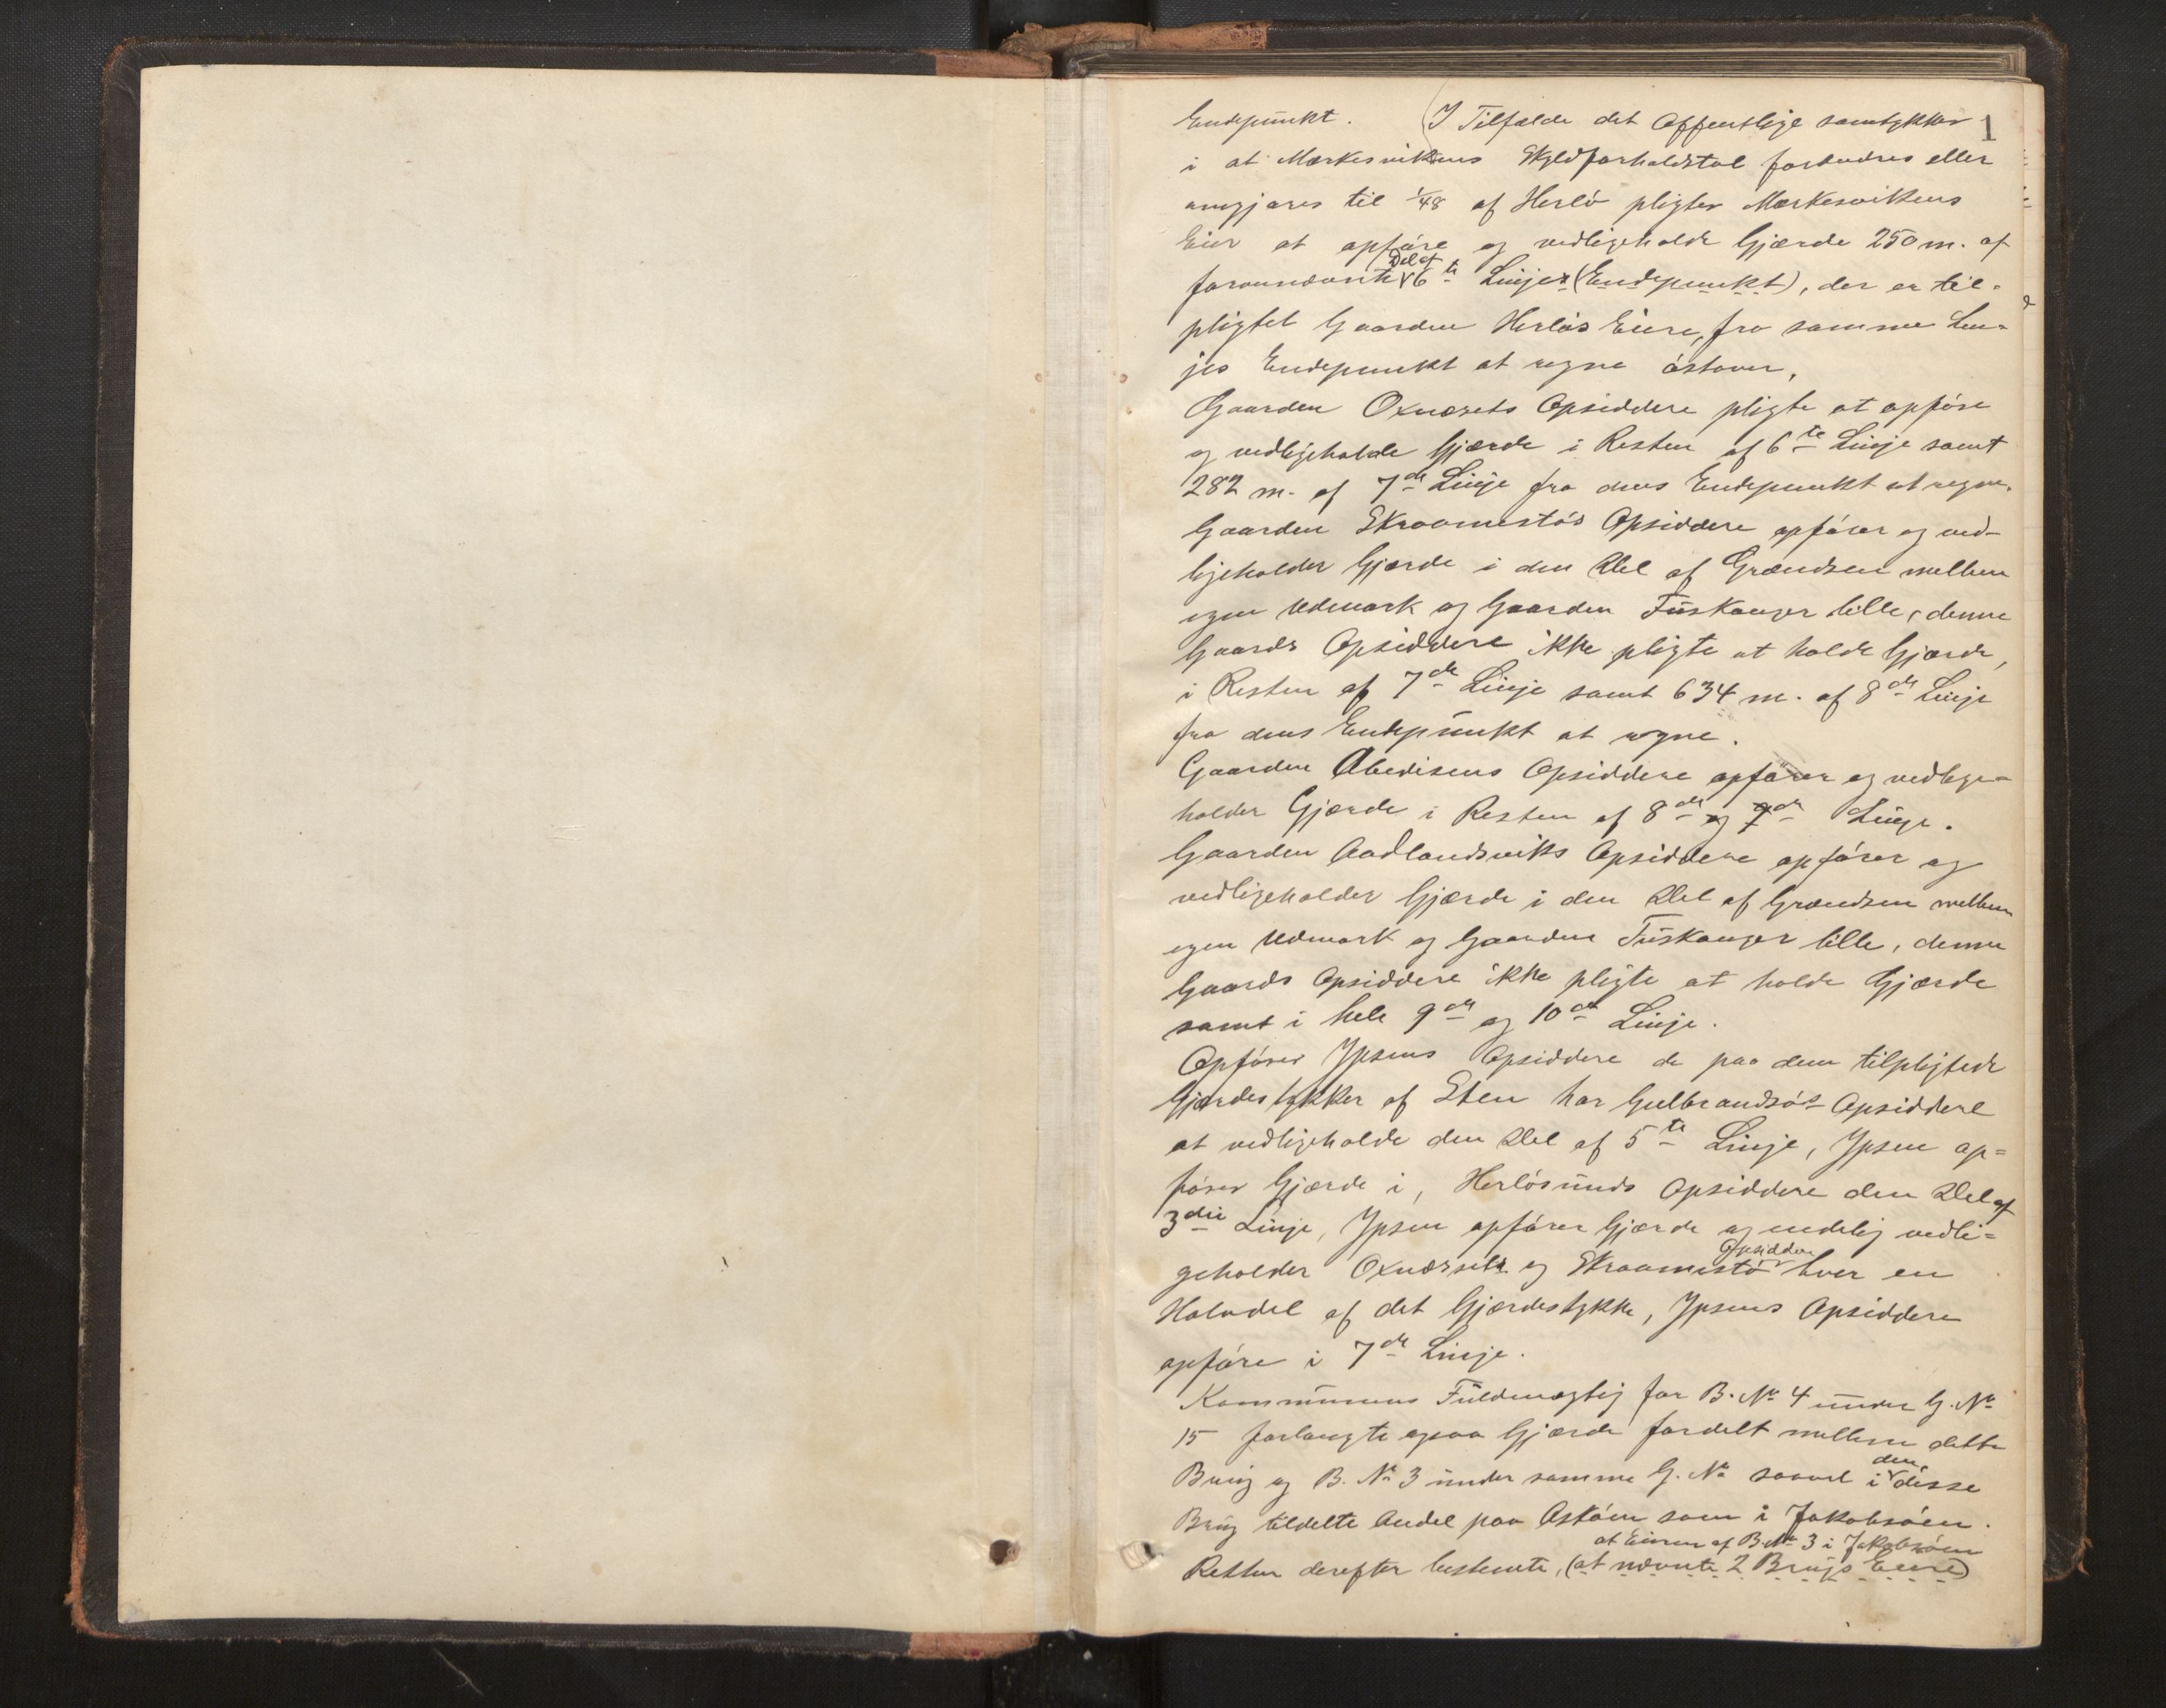 Endepunkt. (I Tilfælde det Offentlige samtykker 1
i at Mærkesvikens Skyldforholdstal forandres eller
omgjøres til 1/48 af Herlö pligter Mærkesvikens
Eier at opföre og vedligeholde Gjærde 250 m. af
Del af
forannævnte 6te Linjes (Endepunkt), der er til-
pligtet Gaarden Herlös Eiere, fra samme Lin-
jes Endepunkt at regne östover,
Gaarden Oxnæsets Opsiddere pligte at opföre
og vedligeholde Gjærde i Resten af 6te Linje samt
282 m. af 7de Linje fra dens Endepunkt at regne.
Gaarden Skraamestös Opsiddere opförer og ved-
ligeholder Gjærde i den Del af Grændsen mellem
egen Udmark og Gaarden Tuskanger lille, denne
Gaards Opsiddere ikke pligte at holde Gjærde,
i Resten af 7de Linje samt 634 m. af 8de Linje
fra dens Endepunkt at regne.
Gaarden Abedisens Opsiddere opförer og vedlige-
holder Gjærde i Resten af 8de og 7de Linje.
Gaarden Aadlandsviks Opsiddere opförer og
vedligeholder Gjærde i den Del af Grændsen mellem
egen Udmark og Gaarden Tuskanger lille, denne
Gaards Opsiddere ikke pligte at holde Gjærde
samt i hele 9de og 10de Linje.
Opförer Ypsens Opsiddere de paa dem tilpligtede
Gjærdestykker af Sten har Gulbrandsös Opsiddere
at vedligeholde den Del af 5te Linje, Ypsen op=
förer Gjærde i, Herlösunds Opsiddere den Del af
3die Linje, Ypsen opförer Gjærde og endelig vedli=
Opsiddere
geholder Oxnæsets og Skraamestö hver en
Halvdel af det Gjærdestykke, Ypsens Opsiddere
opföre i 7de Linje.
Kommunens Fuldmægtig for B. No 4 under G. No
15 forlangte ogsaa Gjærde fordelt mellem dette
Brug og B. No 3 under samme G. No saavel i disse
den
Brug tildelte Andel paa Asköen som i Jakobsöen.
at Eieren af B. No 3 i Jakobsöen
Retten derefter bestemte, (at nævnte 2 Brugs Eiere)